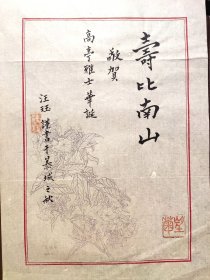 壽比南山
敬賀
高亭雅士華誕
汪珏謹書於慕城之秋